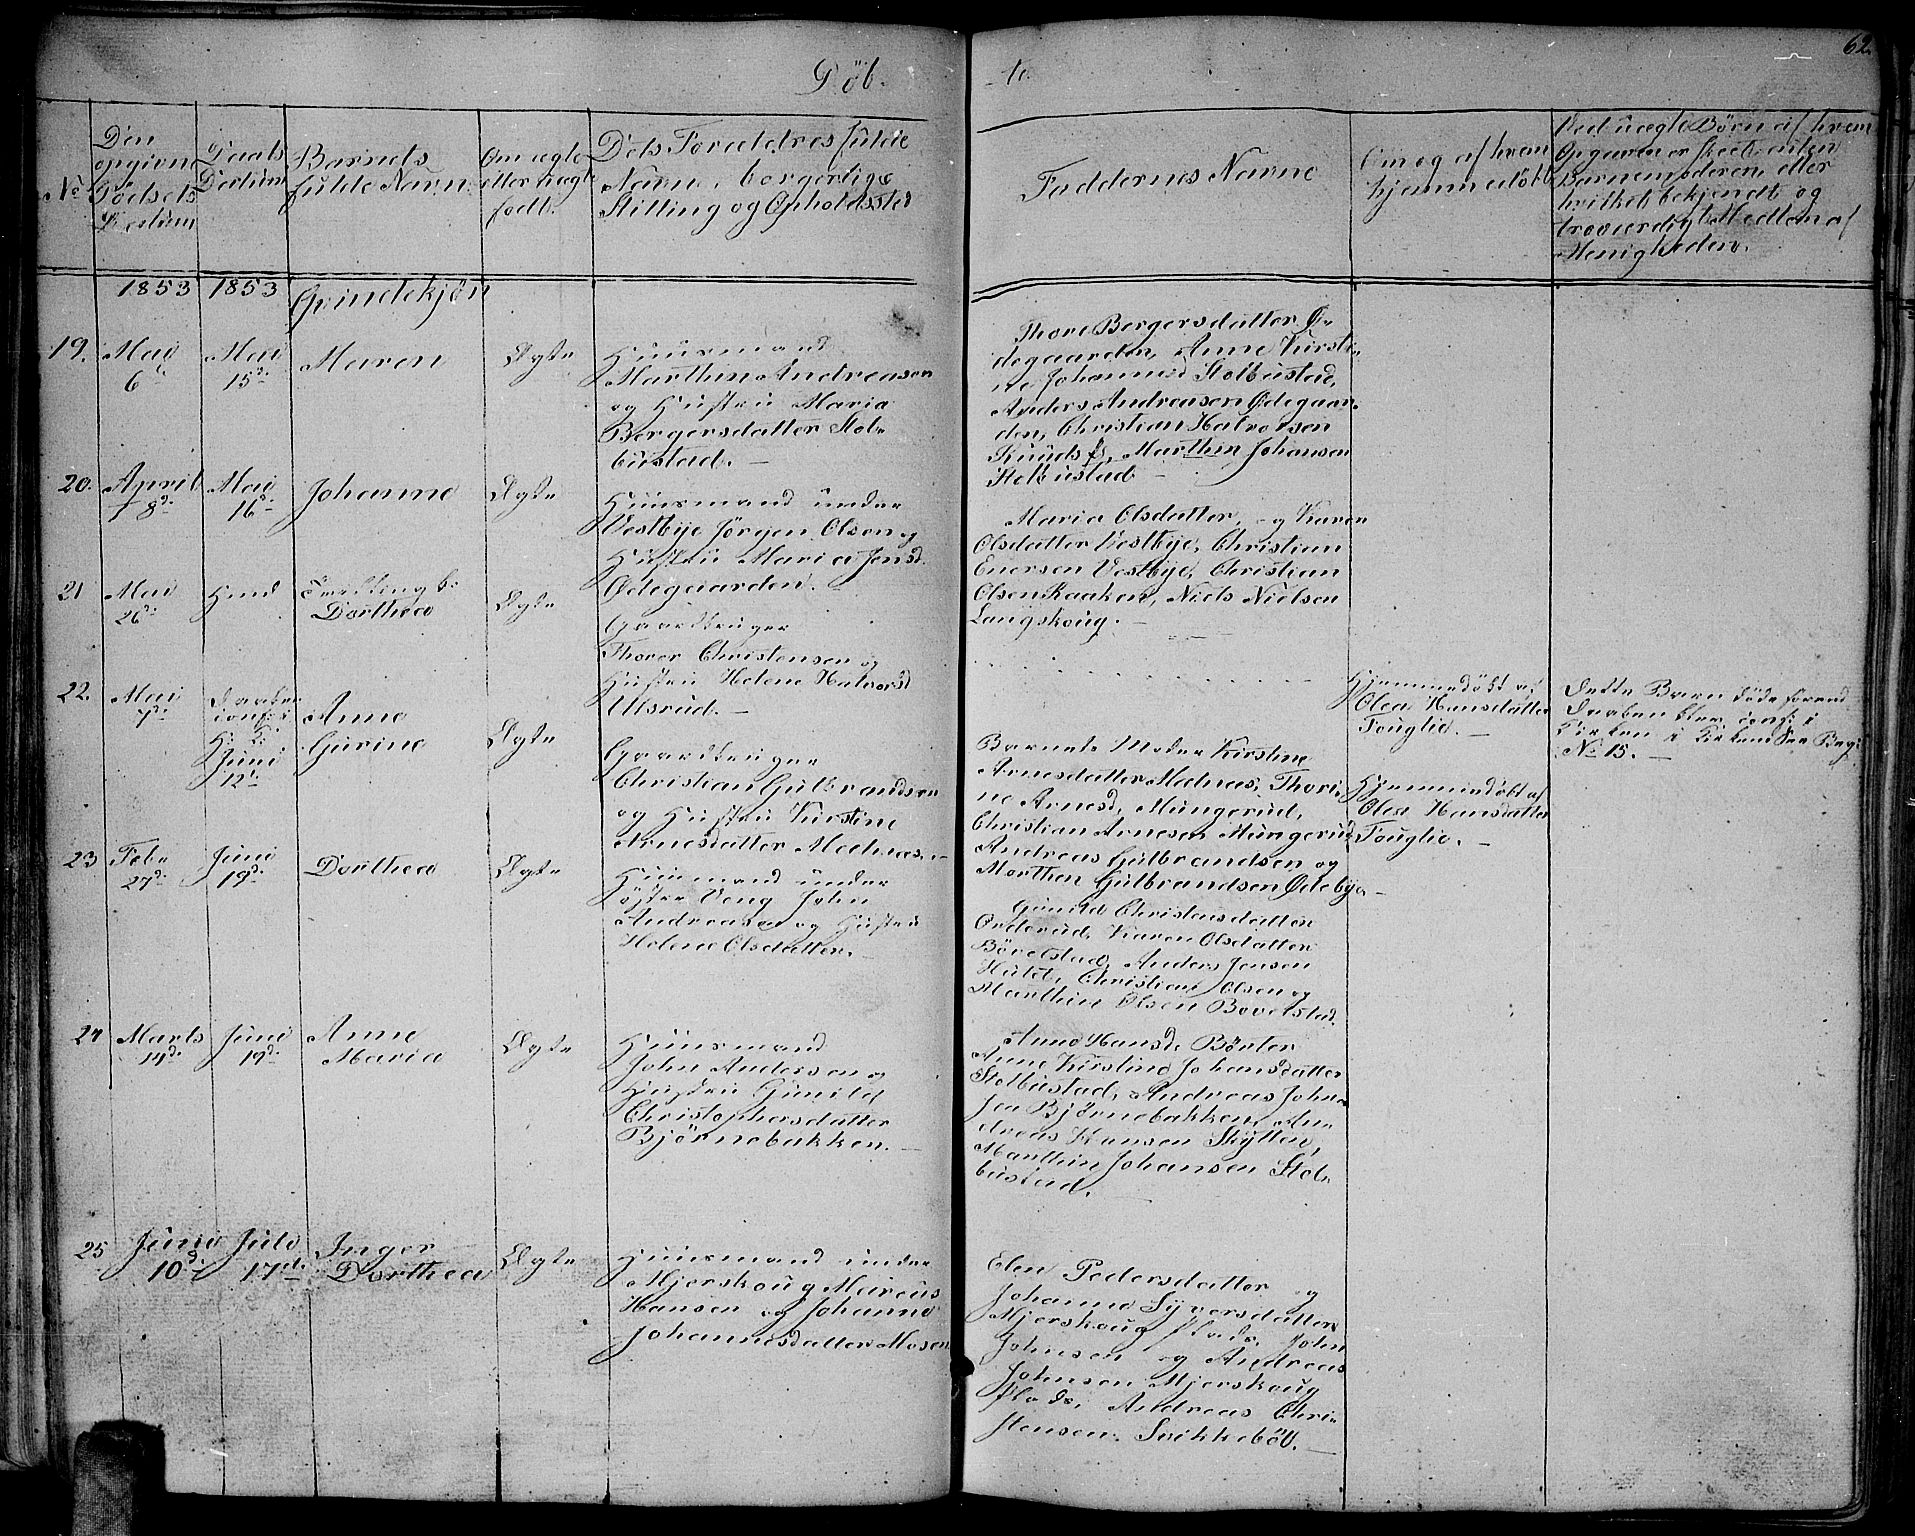 Döb-
-te.
62.
No
Den
opgivne
Födsels
Datum
Daabs
Datum
Barnets
fulde Navn
Om ægte
eller uægte
født.
Dets Forældres fulde
Navne, borgerlige
Stilling og Opholdssted
Faddernes Navne
Om og af hvem
hjemmedöbt
Ved uægte Börn af hvem
Opgaven er skeet, enten
Barnemoderen eller
hvilket bekjendt og
troværdigt Medlem af
Menigheden.
1853
1853
Qvindekjön
19.
Mai
6te
Mai
15de
Maren
Ægte
Huusmand
Marthin Andreasen
og Hustru Maria
Bergersdatter Stol-
bustad. —
Thore Bergersdatter Ö-
degaarden, Anne Kirsti-
ne Johannesd Stolbustad,
Anders Andreasen Ödegaar-
den, Christian Halvorsen
Marthin Johansen
Stolbustad —
20.
April
8de
Mai
16de
Johanne
Ægte
Huusmand under
Vestbye Jörgen Olsen og
Hustru Maria Jensd.
Ödegaarden. —
Maria Olsdatter, og Karen
Olsdatter Vestbye, Christian
Enersen Vestbye, Christian
Olsen Kaaken, Niels Nielsen
Langskoug. —
21
Mai
26de
Hmd
Tvilling b:
Dorthea
Ægte
Gaardbruger
Thorer Christensen og
Hustru Helene Halvorsd
Ulsrud. —
Hjemmedöbt af
Olea Hansdatter
Fouglie. —
Dette Barn döde förend
Daaben blev conf: i
Kirken
No 15. —
22.
Mai
7de
Daaben
conf: i
K: K:
Juni
12te
Anne
Gurine
Ægte
Gaardbruger
Christian Gulbrandsen
og Hustru Kirstine
Arnesdatter Melnæs. —
Barnets Moder Kirstine
Arnesdatter Melnæs, Thori-
ne Arnesd. Mungerud,
Christian Arnesen Mungerud,
Andreas Gulbrandsen og
Morthen Gulbrandsen Ödebye —
Hjemmedöbt af
Olea Hansdatter
Fouglie. —
23
Feb-
27de
Juni
19de
Dorthea
Ægte
Huusmand under
Veng John
Andreasen og Hustru
Helene Olsdatter. —
Gunild Christensdatter
Karen Olsdatter
Bövelstad, Anders Jensen
Christian Olsen og
Marthin Olsen Bovelstad.
24
Marts
14de
Juni
19de
Anne
Maria
Ægte
Huusmand
John Andersen og
Hustru Gunild
Christophersdatter
Björnebakken. —
Anne Hansd. Börter
Anne Kirstine Johansdatter
Stolbustad, Andreas John-
sen Björnebakken, An-
dreas Hansen Skytten,
Marthin Johansen Stol-
bustad. —
25
Juni
10de
Juli
17de
Inger
Dorthea
Ægte
Huusmand under
Mjerskoug Marcus
Hansen og Johanne
Johannesdatter Mosen
Elen Pedersdatter
Johanne Syversdatter og
Mjerskoug Plads, John
Johnsen og Andreas
Johnsen Mjerskoug
Plads, Andreas Chri-
stensen. Svikkeböl. —